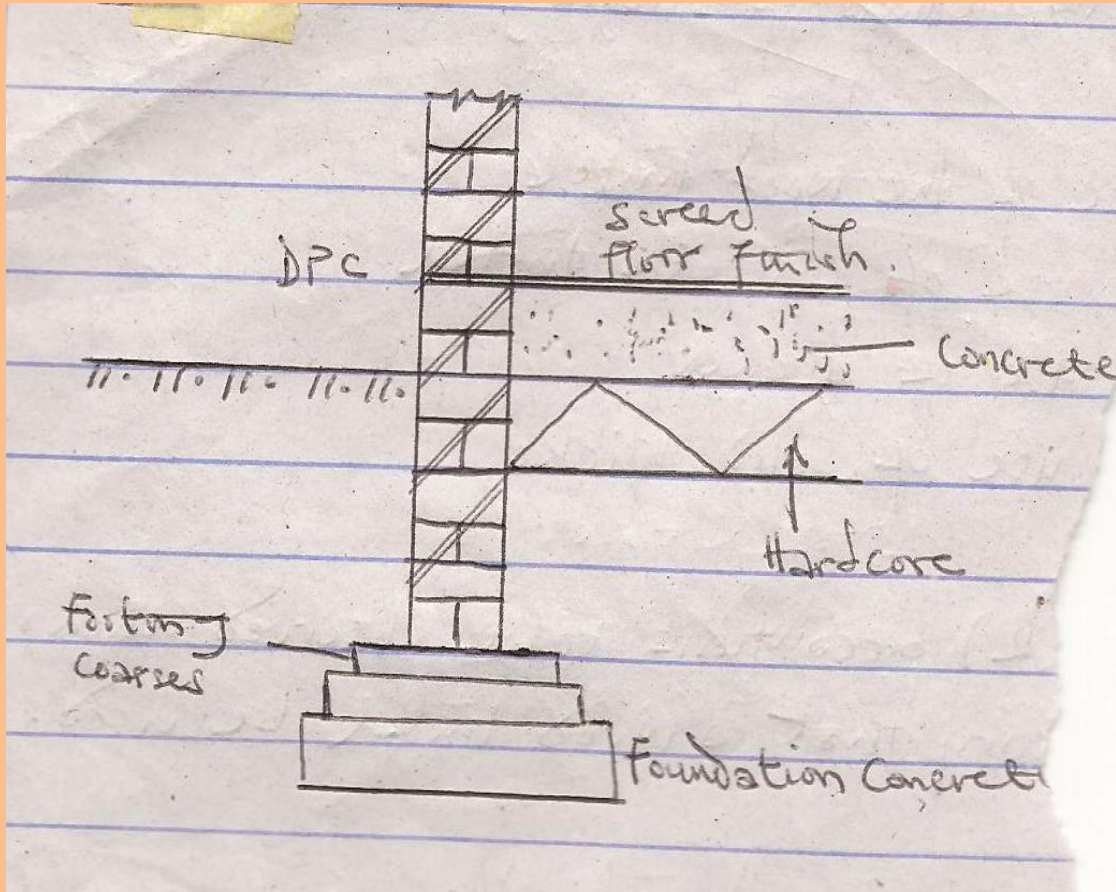 screed
floor finish.
DPC
Concrete
Hardcore
Footing
coarses
Foundation Concret